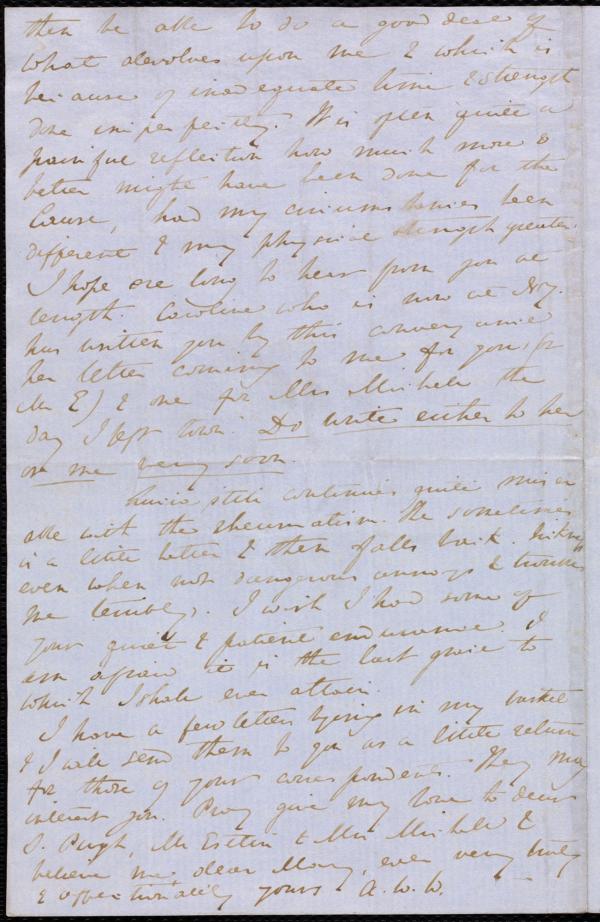 then be able to do a good deal of
what devolves upon me & which is
because of inadequate time & strength
done imperfectly. It is often quite a
painful reflection how much more &
better might have been done for the
Cause, had my circumstances been
different & my physical strength greater.
I hope ere long to hear from you at
length. Caroline who is now at
has written you by this conveyance
her letter coming to me for you, (or
Mr E) & one for Mrs Michell the
day I left town. Do write either to her
or me very soon.
Lucia still continues quite miser
able with the rheumatism. She sometimes
is a little better & then falls back. Sickness
even when not dangerous annoys & troubles
me terribly. I wish I had some of
your quiet & patient endurance. I
am afraid it is the last grace to
which I shall ever attain.
I have a few letters lying in my basket
& I will send them to you as a little return
for those of your correspondents. They may
interest you. Pray give my love to dear
S. Pugh, Mr Estlin & Mrs Michell &
believe me, dear Mary, ever very truly
& affectionately yours A. W. W.